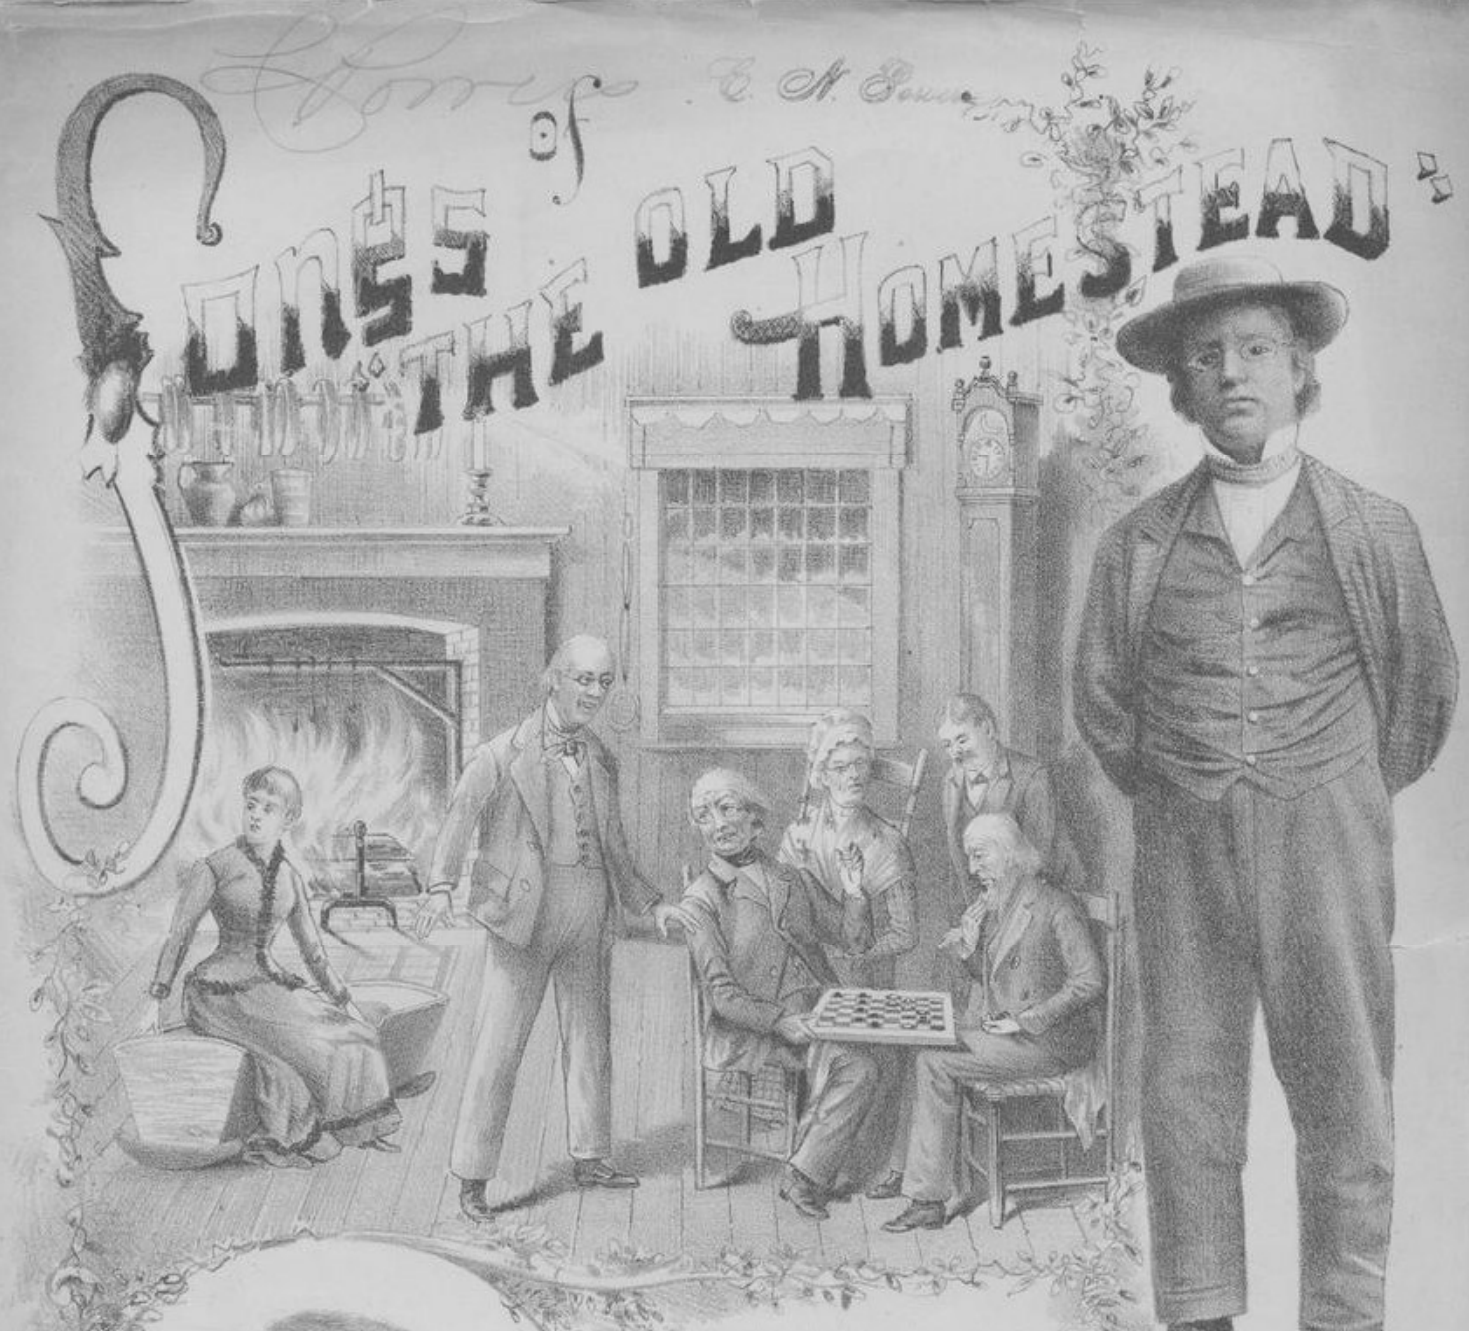 Songs of
"THE OLD HOMESTEAD"